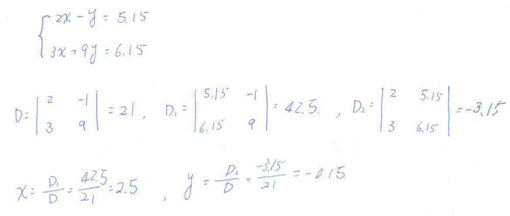 2x - y = 5.15
3x + 9y = 6.15
D = | 2 -1 ; 3 9 | = 21 , D₁ = | 5.15 -1 ; 6.15 9 | = 42.5. , D₂ = | 2 5.15 ; 3 6.15 | = -3.15
x = D₁/D = 42.5/21 = 2.5 , y = D₂/D = -3.15/21 = -0.15